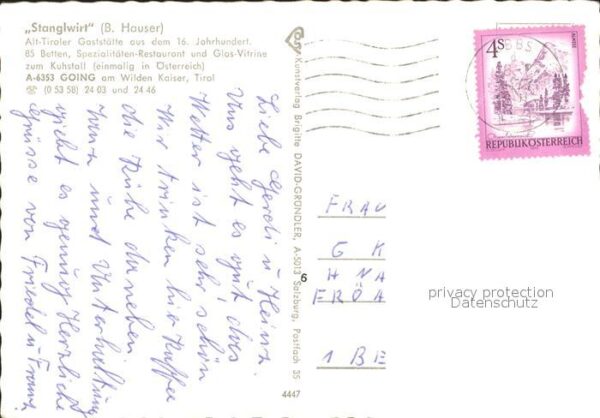 „Stanglwirt“ (B. Hauser)
Alt-Tiroler Gaststätte aus dem 16. Jahrhundert.
85 Betten, Spezialitäten-Restaurant und Glas-Vitrine
zum Kuhstall (einmalig in Österreich)
A-6353 GOING am Wilden Kaiser, Tirol
☏ (0 53 58) 24 03 und 24 46
Liebe Gerdi u Heinz.
Uns geht es gut das
Wetter ist sehr schön
Wir trinken hier Kaffee
die Kühe daneben
und Unterhaltung
gicht es genug Herzliche
Grüsse von Friedel u Franz
Kunstverlag Brigitte DAVID-GRÜNDLER, A-5013 Salzburg, Postfach 35
6
4447
4 S
REPUBLIK ÖSTERREICH
FRAU
G K
H N A
FRÖA
1 BE
privacy protection
Datenschutz